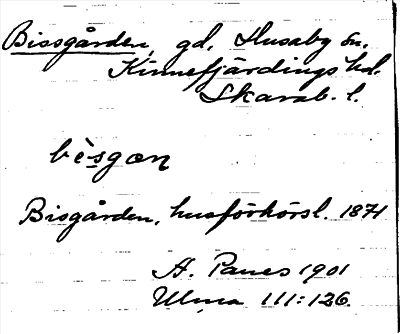 Bissgården, gd, Husaby sn.
Kinnefjärdings hd.
Skarab. l.
bè-sgæn
Bisgården, husförhörsl. 1871
A. Panes 1901
Ulma 111:126.